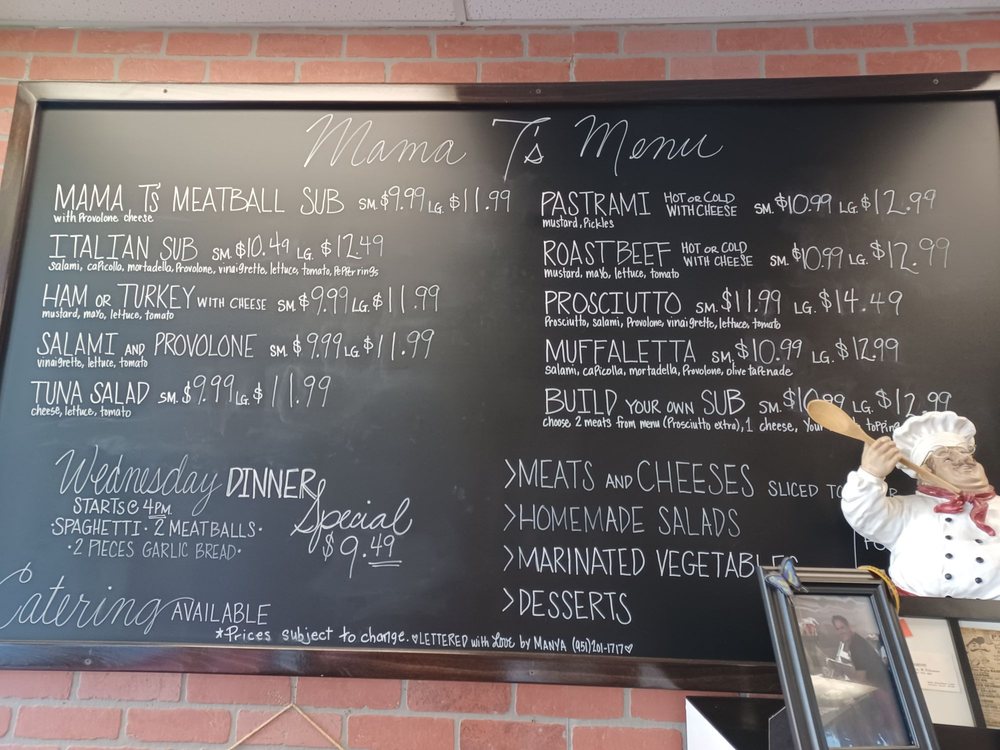 Mama T's Menu
MAMA T'S MEATBALL SUB SM. $9.99 LG. $11.99
with Provolone cheese
ITALIAN SUB SM. $10.49 LG. $12.49
salami, capicolla, mortadella, Provolone, vinaigrette, lettuce, tomato, PePPer rings
HAM OR TURKEY WITH CHEESE SM. $9.99 LG. $11.99
mustard, mayo, lettuce, tomato
SALAMI AND PROVOLONE SM. $9.99 LG. $11.99
vinaigrette, lettuce, tomato
TUNA SALAD SM. $9.99 LG. $11.99
cheese, lettuce, tomato
PASTRAMI HOT OR COLD WITH CHEESE SM. $10.99 LG. $12.99
mustard, Pickles
ROAST BEEF HOT OR COLD WITH CHEESE SM. $10.99 LG. $12.99
mustard, mayo, lettuce, tomato
PROSCIUTTO SM. $11.99 LG. $14.49
Prosciutto, salami, Provolone, vinaigrette, lettuce, tomato
MUFFALETTA SM. $10.99 LG. $12.99
salami, capicolla, mortadella, Provolone, olive tapenade
BUILD YOUR OWN SUB SM. $10.99 LG. $12.99
choose 2 meats from menu (Prosciutto extra), 1 cheese,
Wednesday DINNER
STARTS @ 4PM.
Special
·SPAGHETTI · 2 MEATBALLS·
$9.49
·2 PIECES GARLIC BREAD·
Catering AVAILABLE
>MEATS AND CHEESES SLICED
>HOMEMADE SALADS
>MARINATED VEGETABLES
>DESSERTS
*Prices subject to change. ♡LETTERED with Love by MANYA (951)201-1717♡